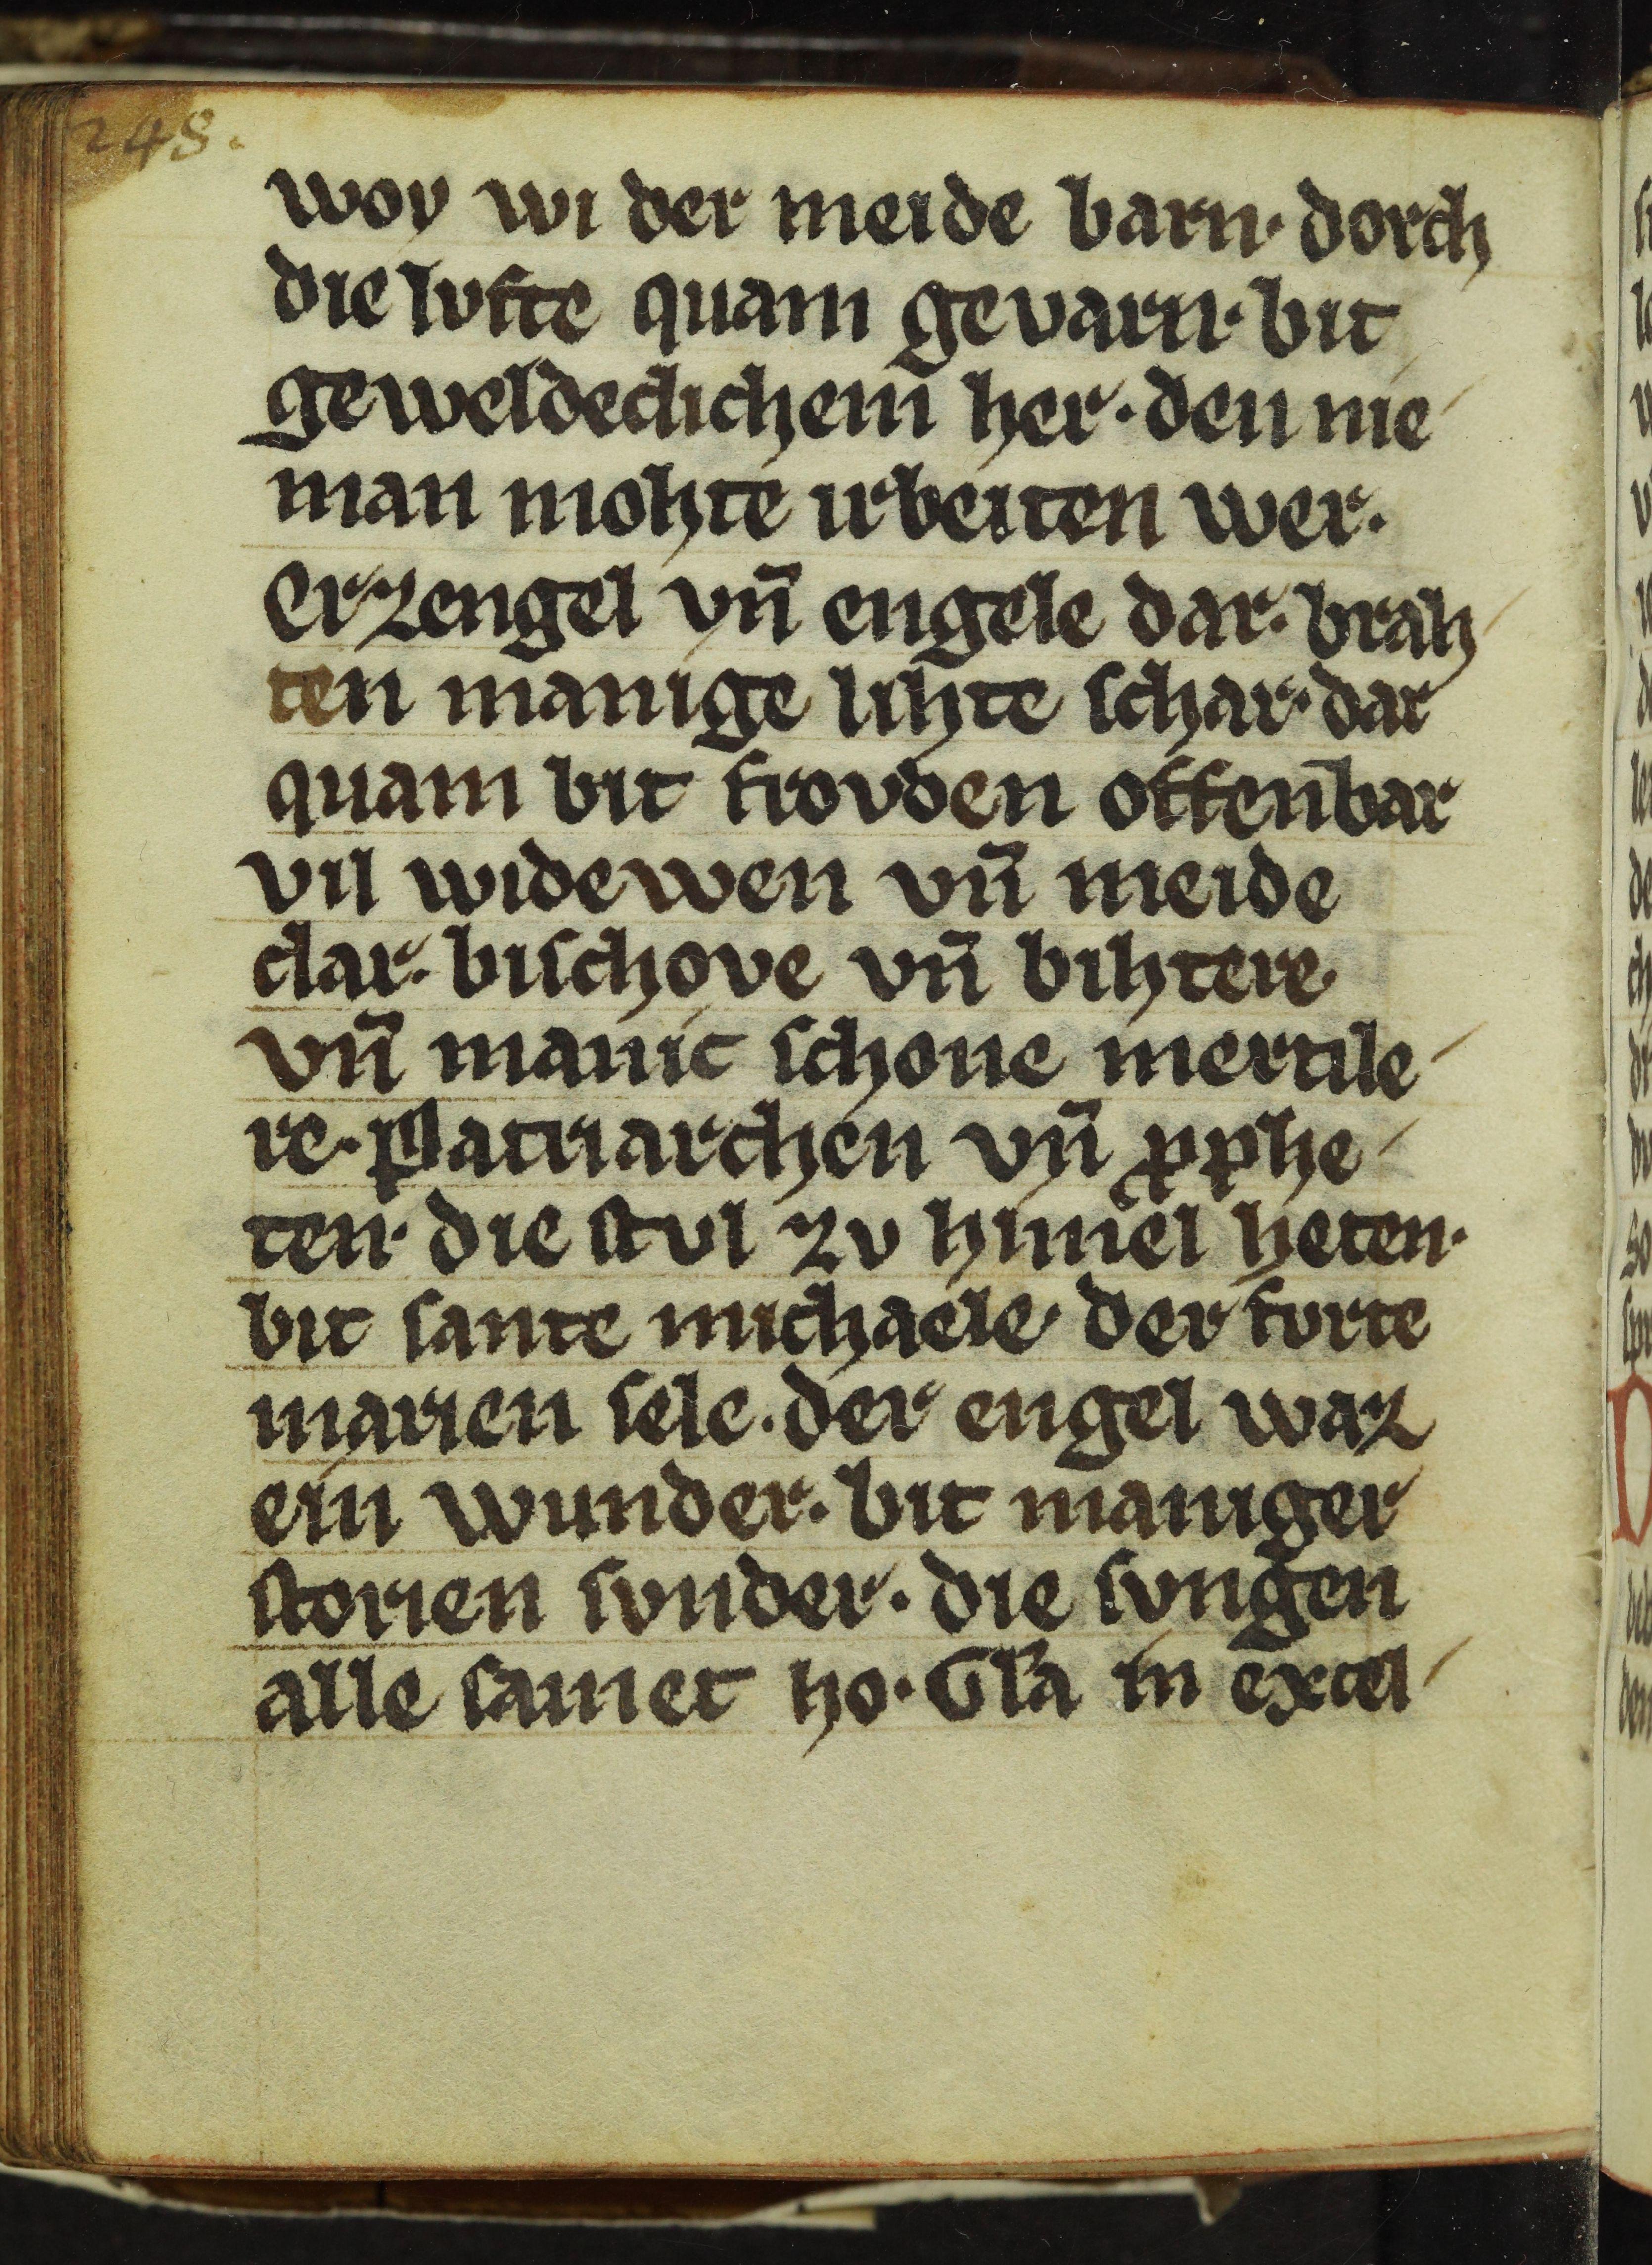 248.
woy wi der meide barn· dorch
die lvfte quam gevarn· bit
geweldeclichem her· den nie
man mohte irbeiten wer.
Erzengel vn̄ engele dar· brah
ten manige lihte schar· dar
quam bit frovden offenbar
vil widewen vn̄ meide
clar· bischove vn̄ bihtere·
vn̄ manic schone mertile
re· Patriarchen vn̄ ꝓphe
ten· die stvl zv himel heten·
bit sante michaele· der fvrte
marien sele· der engel waz
ein wunder· bit maniger
storien svnder· die svngen
alle samet ho· Gl̄a in excel